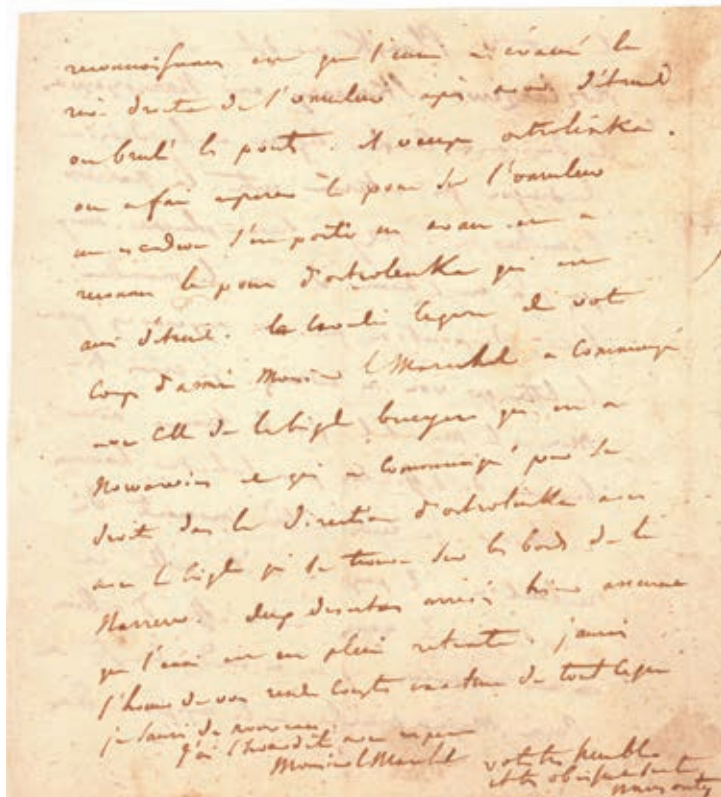 reconnoissance que l'ennemi a évacué la
rive droite de l'omulew après avoir détruit
ou brulé les ponts. il occupe ostrolenka.
on a fait réparer le pont sur l'omulew
un escadron s'en porté en avant on a
reconnu le pont d'ostrolenka qui est
aussi détruit. la cavalerie légère de votre
Corps d'armée Monsieur le Maréchal a Communiqué
avec celle de la brigade bruyere qui est a
Nowawies et qui a Communiqué par sa
droite dans la direction d'ostrolenka avec
avec la brigade qui se trouve sur les bords de la
Narrew. deux deserteurs arrivés hier assurent
que l'ennemi est en pleine retraite. j'aurai
l'honneur de vous rendre Compte de tout ce que
je saurai de nouveau.
j'ai l'honneur d'être avec respect
Monsieur le Maréchal votre très humble
et très obéissant